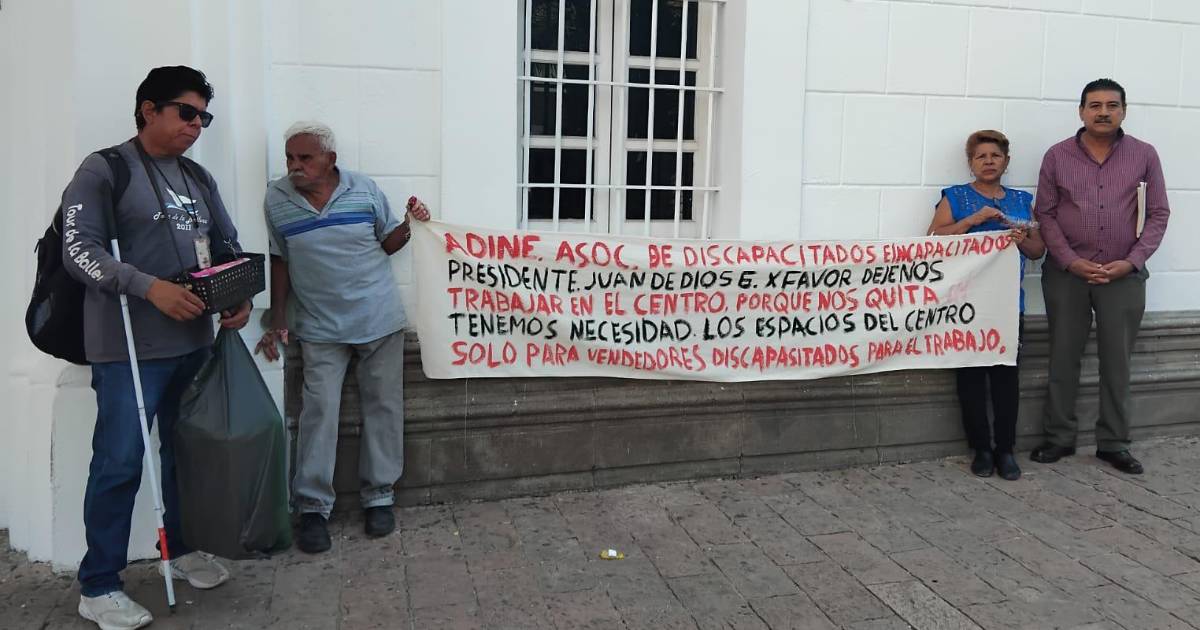 ADINE. ASOC. DE DISCAPACITADOS E INCAPACITADOS
PRESIDENTE. JUAN DE DIOS G. X FAVOR DEJENOS
TRABAJAR EN EL CENTRO. PORQUE NOS QUITA
TENEMOS NECESIDAD. LOS ESPACIOS DEL CENTRO
SOLO PARA VENDEDORES DISCAPASITADOS PARA EL TRABAJO.
Tour de la